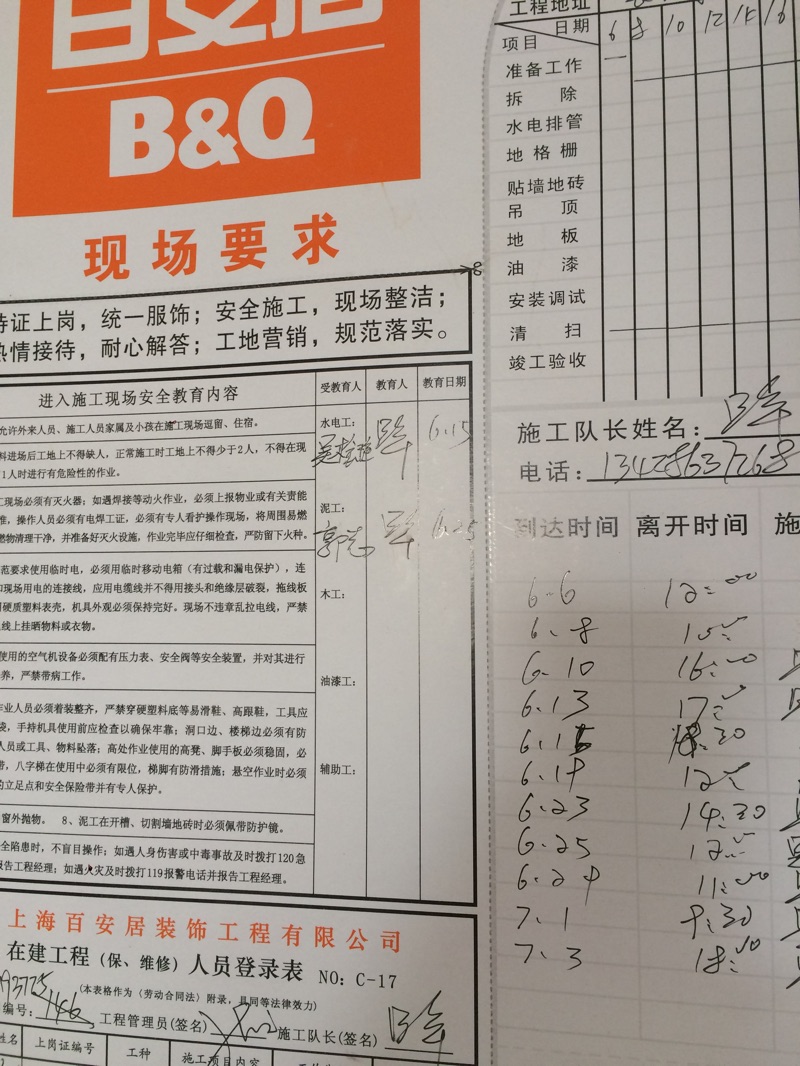 百安居
B&Q
现场要求
持证上岗，统一服饰；安全施工，现场整洁；
热情接待，耐心解答；工地营销，规范落实。
进入施工现场安全教育内容 受教育人 教育人 教育日期
允许外来人员、施工人员家属及小孩在施工现场逗留、住宿。
料进场后工地上不得缺人，正常施工时工地上不得少于2人，不得在现
1人时进行有危险性的作业。
水电工： 6.15
工现场必须有灭火器；如遇焊接等动火作业，必须上报物业或有关责能
准，操作人员必须有电焊工证，必须有专人看护操作现场，将周围易燃
燃物清理干净，并准备好灭火设施，作业完毕应仔细检查，严防留下火种。
泥工： 6.25
范要求使用临时电，必须用临时移动电箱（有过载和漏电保护），连
和现场用电的连接线，应用电缆线并不得用接头和绝缘层破裂，拖线板
用硬质塑料表壳，机具外观必须保持完好。现场不违章乱拉电线，严禁
线上挂晒物料或衣物。
木工：
使用的空气机设备必须配有压力表、安全阀等安全装置，并对其进行
养，严禁带病工作。
油漆工：
作业人员必须着装整齐，严禁穿硬塑料底等易滑鞋、高跟鞋，工具应
袋，手持机具使用前应检查以确保牢靠；洞口边、楼梯边必须有防
人员或工具、物料坠落；高处作业使用的高凳、脚手板必须稳固，必
带，八字梯在使用中必须有限位，梯脚有防滑措施；悬空作业时必须
的立足点和安全保险带并有专人保护。
辅助工：
窗外抛物。 8、泥工在开槽、切割墙地砖时必须佩带防护镜。
全陷患时，不盲目操作；如遇人身伤害或中毒事故及时拨打120急
报告工程经理；如遇火灾及时拨打119报警电话并报告工程经理。
上海百安居装饰工程有限公司
在建工程（保、维修）人员登录表 NO：C-17
（本表格作为《劳动合同法》附录，具同等法律效力）
编号： 146 ，工程管理员(签名) 施工队长(签名)
姓名 上岗证编号 工种 施工项目内容
工程地址
日期 6 8 10 12 15 16
项目
准备工作
拆 除
水电排管
地格栅
贴墙地砖
吊 顶
地 板
油 漆
安装调试
清 扫
竣工验收
施工队长姓名：
电话：13428637268
到达时间 离开时间 施
6.6 12:00
6.8
6.10 16:00
6.13 17:
6.15 :30
6.19 12
6.23 14:30
6.25 12:
6.29 11:00
7.1 9:30
7.3 18:00